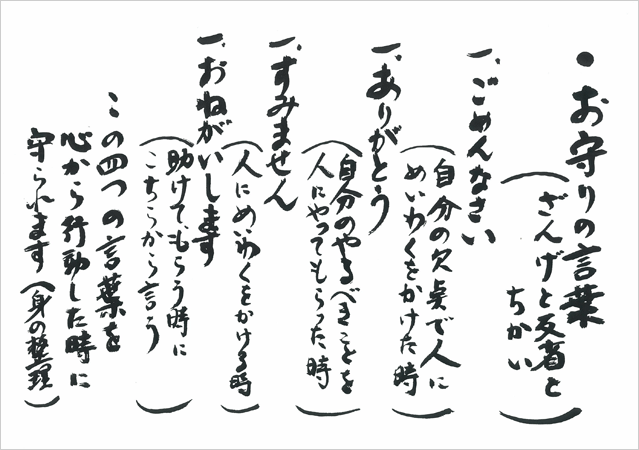 ●お守りの言葉
（ざんげと反省と
ちかい）
一、ごめんなさい
（自分の欠点で人に
めいわくをかけた時）
一、ありがとう
（自分のやるべきことを
人にやってもらった時）
一、すみません
（人にめいわくをかける時）
一、おねがいします
（助けてもらう時に
こちらから言う）
この四つの言葉を
心から行動した時に
守られます（身の整理）